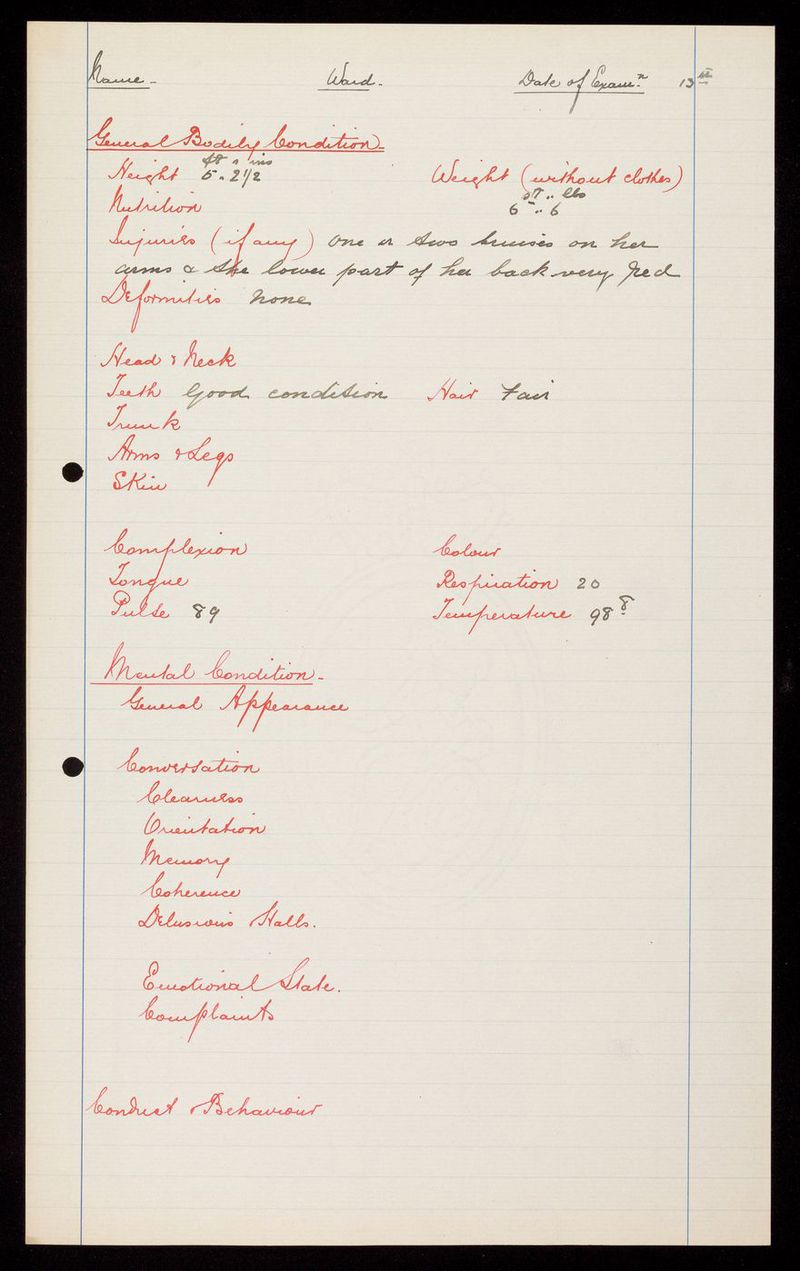 Name - Ward - Date of Examn. 13th
General Bodily Condition -
Height ft " ins 5 " 2 1/2 Weight (without clothes)
Nutrition st " lbs 6 " 6
Injuries (if any) One or two bruises on her
arms & the lower part of her back very red
Deformities None
Head & Neck
Teeth Good condition Hair Fair
Trunk
Arms & Legs
Skin
Complexion Colour
Tongue Respiration 20
Pulse 89 Temperature 98 8
Mental Condition -
General Appearance
Conversation
Clearness
Orientation
Memory
Coherence
Delusions Halls.
Emotional State.
Complaints
Conduct & Behaviour